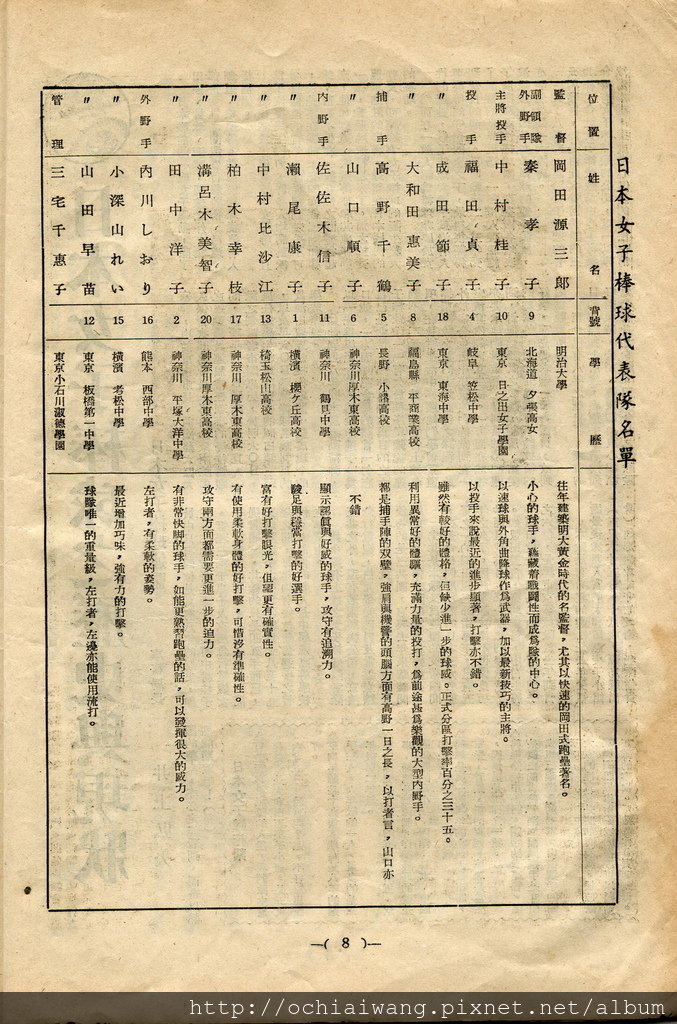 日本女子棒球代表隊名單
位置 姓名 背號 學歷
監督 岡田源三郎 明治大學 往年建築明大黃金時代的名監督，尤其以快速的岡田式跑壘著名。
副領隊外野手 秦孝子 9 北海道 夕張高女 小心的球手，蘊藏着戰鬪性而成為隊的中心。
主將投手 中村桂子 10 東京 日之出女子學園 以速球與外角曲降球作為武器，加以最新技巧的主將。
投手 福田貞子 4 岐阜 笠松中學 以投手來說最近的進步顯著，打擊亦不錯。
〃 成田節子 18 東京 東海中學 雖然有較好的體格，但缺少進一步的球威。正式分區打擊率百分之三十五。
〃 大和田惠美子 8 福島縣 平商業高校 利用異常好的體軀，充滿力量的投打，為前途甚為樂觀的大型內野手。
捕手 高野千鶴 5 長野 小諸高校 都是捕手陣的双璧，強肩與機警的頭腦方面有高野一日之長，以打者言，山口亦
〃 山口順子 6 神奈川厚木東高校 不錯
內野手 佐佐木信子 11 神奈川 鶴見中學 顯示認眞與好威的球手，攻守有追溯力。
〃 瀨尾康子 1 橫濱 櫻ケ丘高校 駿足與穩當打擊的好選手。
〃 中村比沙江 13 埼玉松山高校 富有好打擊眼光，但要更有確實性。
〃 柏木幸枝 17 神奈川 厚木東高校 有使用柔軟身體的好打擊，可惜沒有準確性。
〃 溝呂木美智子 20 神奈川厚木東高校 攻守兩方面都需要更進一步的迫力。
〃 田中洋子 2 神奈川 平塚大洋中學 有非常快脚的球手，如能更熟習跑壘的話，可以發揮很大的威力。
外野手 內川しおり 16 熊本 西部中學 左打者，有柔軟的姿勢。
〃 小深山れい 15 橫濱 老松中學 最近增加巧味，強有力的打擊。
〃 山田早苗 12 東京 板橋第一中學 球隊唯一的重量級，左打者，左邊亦能使用流打。
管理 三宅千惠子 東京小石川淑德學園
—( 8 )—
http://ochiaiwang.pixnet.net/album